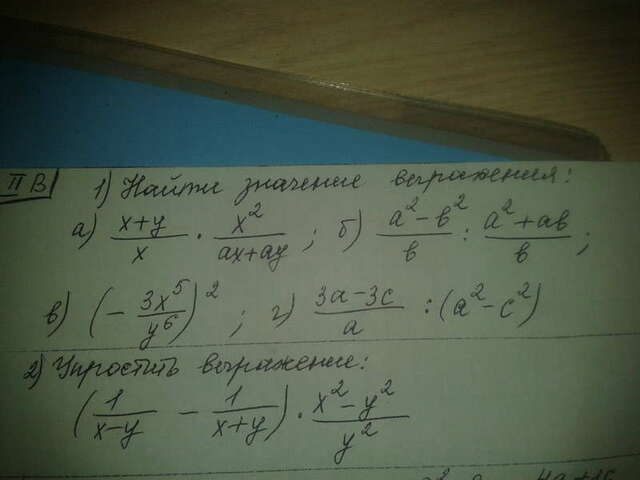 II В 1) Найти значение выражения:
а) (x+y)/x · x²/(ax+ay) ; б) (a²-b²)/b : (a²+ab)/b ;
в) (- 3x⁵/y⁶)² ; г) (3a-3c)/a : (a²-c²)
2) Упростить выражение:
(1/(x-y) - 1/(x+y)) · (x²-y²)/y²